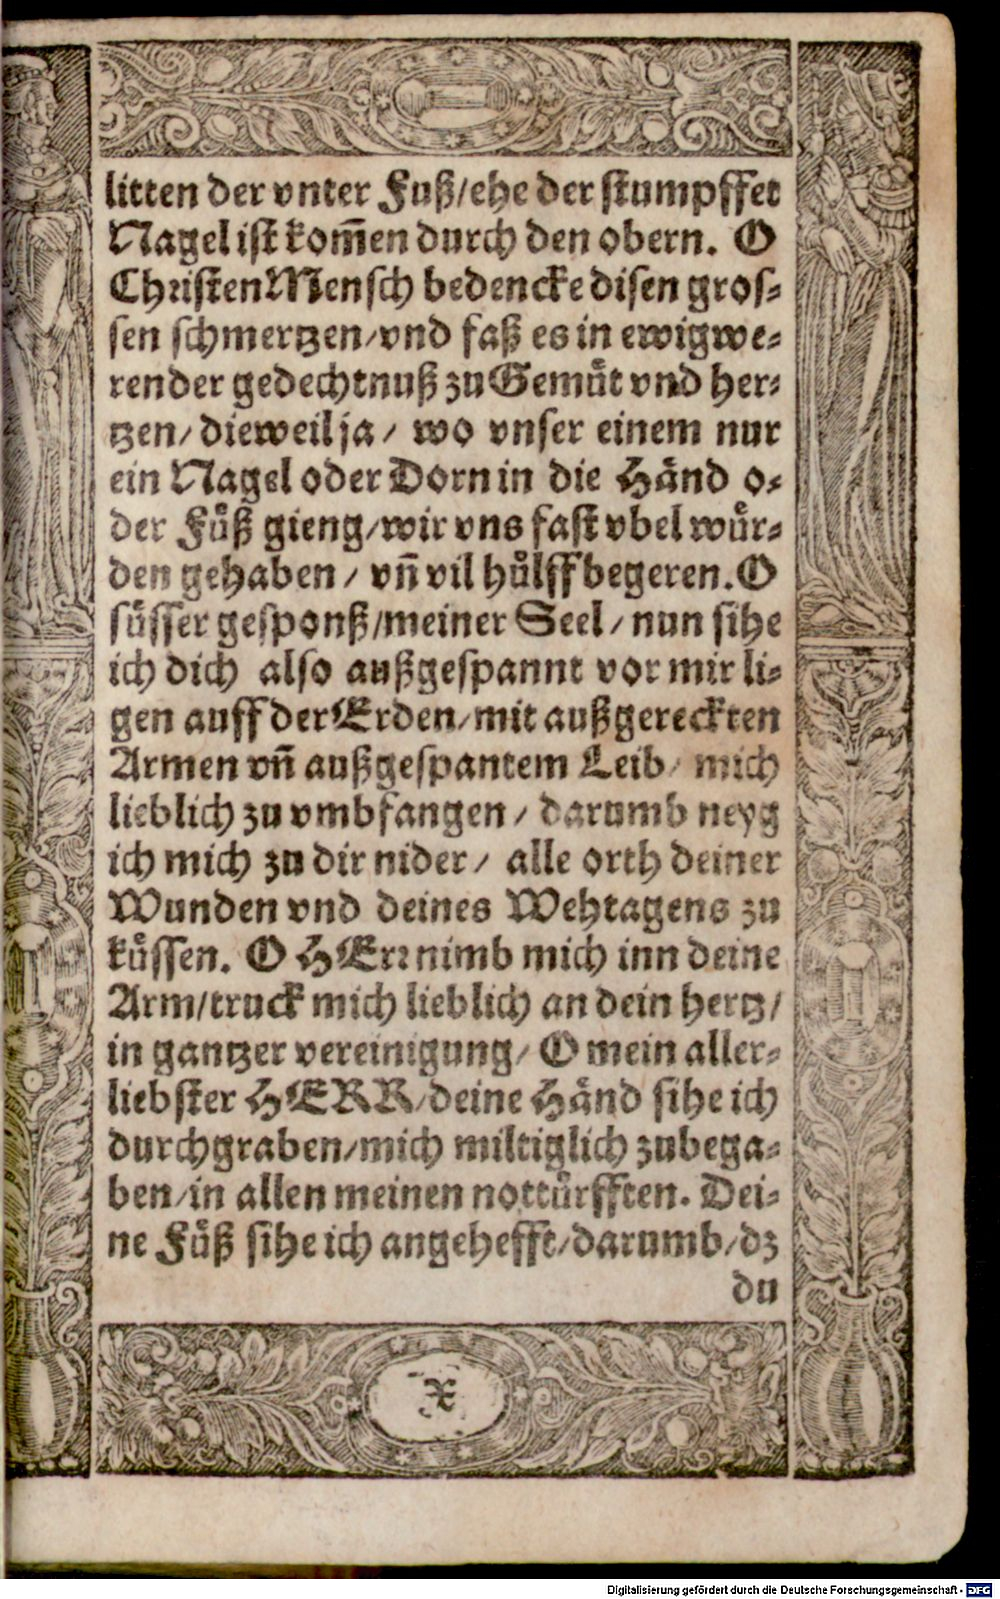 litten der vnter Fuß/ehe der stumpffet
Nagel ist kom̃en durch den obern. O
Christen Mensch bedencke disen gros-
sen schmertzen/vnd faß es in ewigwe-
render gedechtnuß zu Gemuͤt vnd her-
tzen/dieweil ja/ wo vnser einem nur
ein Nagel oder Dorn in die Haͤnd o-
der Fuͤß gieng/wir vns fast vbel wuͤr-
den gehaben/ vñ vil huͤlff begeren. O
suͤsser gesponß/meiner Seel/nun sihe
ich dich also außgespannt vor mir li-
gen auff der Erden/mit außgereckten
Armen vñ außgespantem Leib/ mich
lieblich zu vmbfangen/ darumb neyg
ich mich zu dir nider/ alle orth deiner
Wunden vnd deines Wehtagens zu
kuͤssen. O HErr nimb mich inn deine
Arm/truck mich lieblich an dein hertz/
in gantzer vereinigung/ O mein aller-
liebster HERR/deine Haͤnd sihe ich
durchgraben/mich miltiglich zubega-
ben/in allen meinen nottuͤrfften. Dei-
ne Fuͤß sihe ich angehefft/darumb/dz
du
X
Digitalisierung gefördert durch die Deutsche Forschungsgemeinschaft - DFG